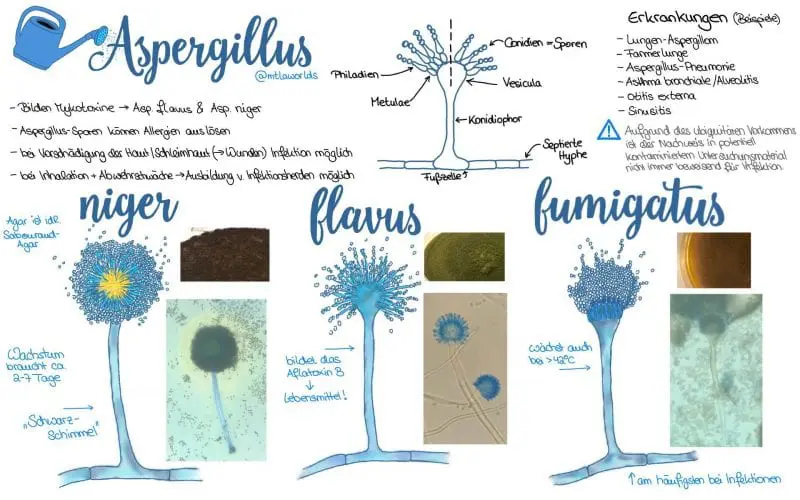 Aspergillus
@mtlaworlds
- Bilden Mykotoxine → Asp. flavus & Asp. niger
- Aspergillus-Sporen können Allergien auslösen
- bei Vorschädigung der Haut/Schleimhaut (→Wunden) Infektion möglich
- bei Inhalation + Abwehrschwäche → Ausbildung v. Infektionsherden möglich
Conidien = Sporen
Philadien
Metulae
Vesicula
Konidiophor
Septierte
Hyphe
Fußzelle↑
Erkrankungen (Beispiele)
- Lungen-Aspergillom
- Farmerlunge
- Aspergillus-Pneumonie
- Asthma bronchiale/Alveolitis
- Otitis externa
- Sinusitis
Aufgrund des ubiquitären Vorkommens
ist der Nachweis in potentiell
kontaminiertem Untersuchungsmaterial
nicht immer beweisend für Infektion.
niger
Agar ist idR
Sabouraud-
Agar
Wachstum
braucht ca.
2-7 Tage
"Schwarz-
Schimmel"
flavus
bildet das
Aflatoxin B
↓
Lebensmittel!
fumigatus
wächst auch
bei >42°C
↑ am häufigsten bei Infektionen